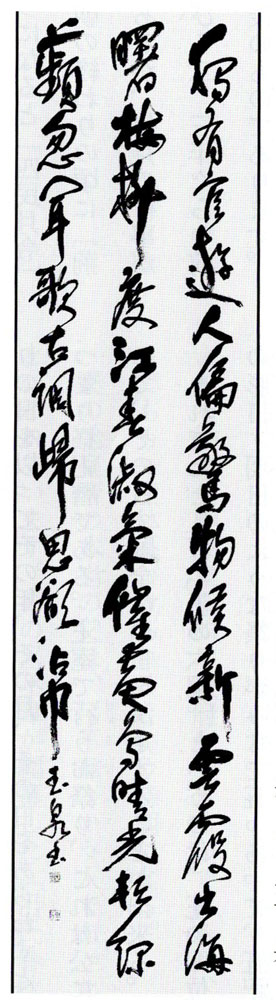 獨有宦遊人偏驚物候新雲霞出海
曙梅柳度江春淑氣催黄鳥晴光転緑
蘋忽聞歌古調歸思欲沾巾 玉泉書